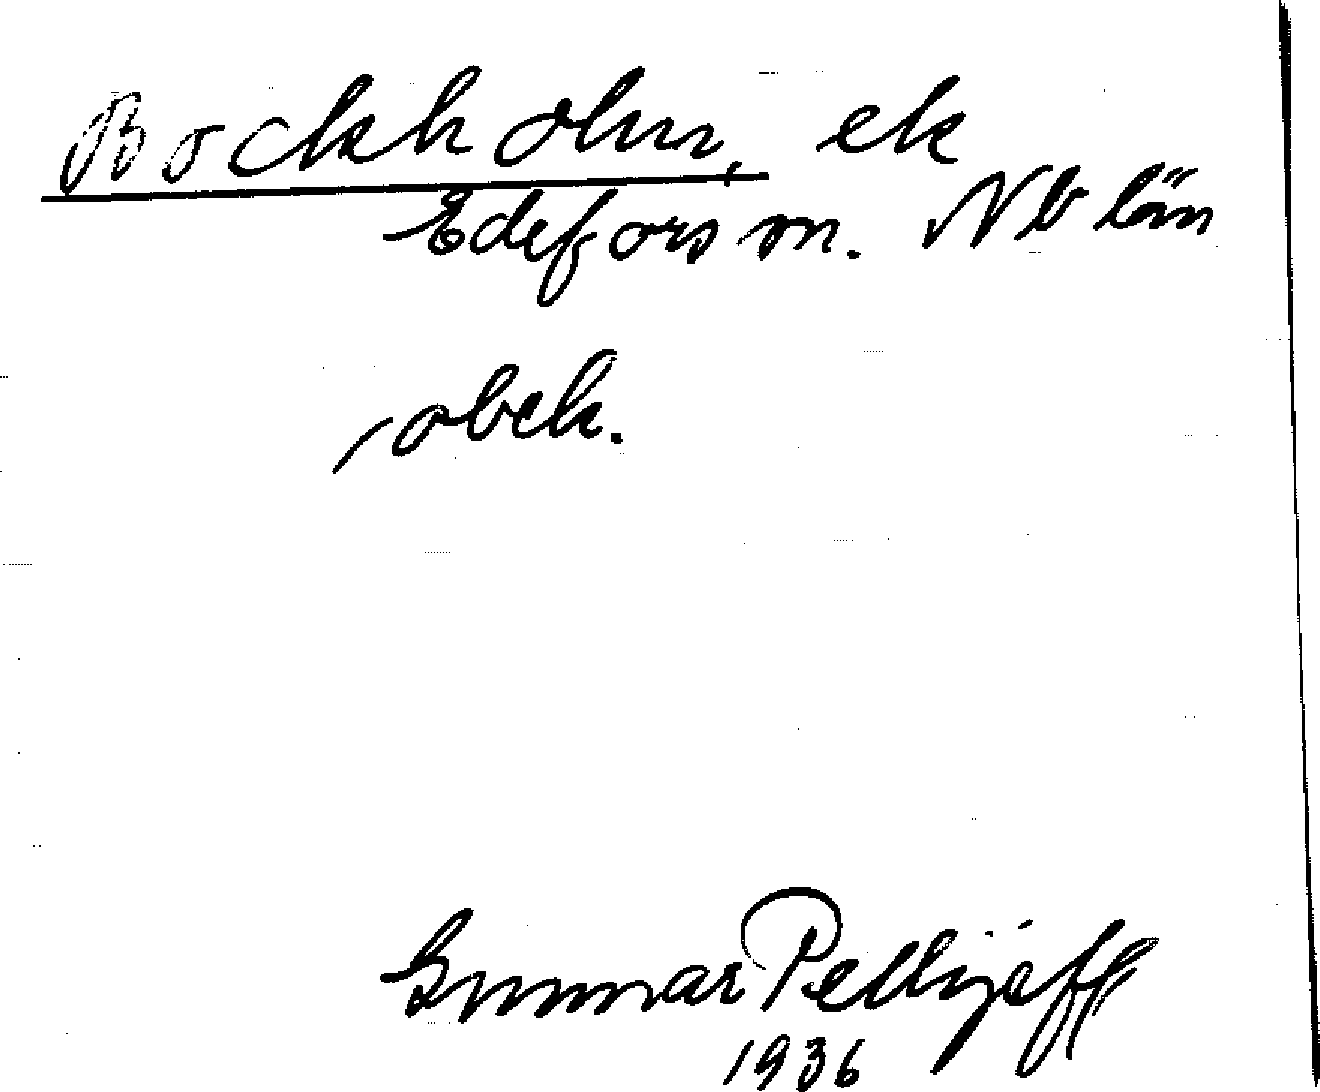 Bockholm, ek
Edefors sn. Nb län
obek.
Gunnar Pellijeff
1936